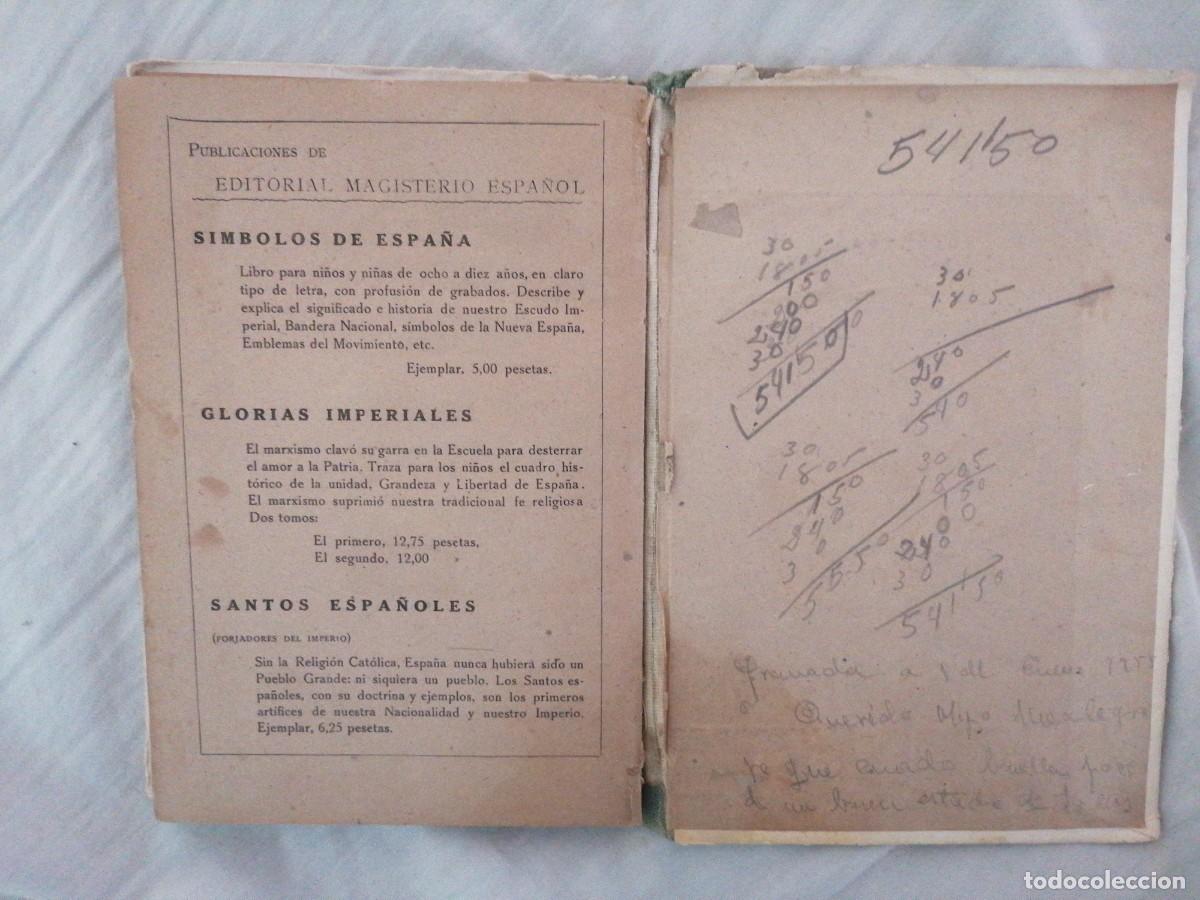 PUBLICACIONES DE
EDITORIAL MAGISTERIO ESPAÑOL
SIMBOLOS DE ESPAÑA
Libro para niños y niñas de ocho a diez años, en claro
tipo de letra, con profusión de grabados. Describe y
explica el significado e historia de nuestro Escudo Im-
perial, Bandera Nacional, símbolos de la Nueva España,
Emblemas del Movimiento, etc.
Ejemplar, 5,00 pesetas.
GLORIAS IMPERIALES
El marxismo clavó su garra en la Escuela para desterrar
el amor a la Patria. Traza para los niños el cuadro his-
tórico de la unidad, Grandeza y Libertad de España.
El marxismo suprimió nuestra tradicional fe religiosa
Dos tomos:
El primero, 12,75 pesetas,
El segundo, 12,00
SANTOS ESPAÑOLES
(FORJADORES DEL IMPERIO)
Sin la Religión Católica, España nunca hubiera sido un
Pueblo Grande: ni siquiera un pueblo. Los Santos es-
pañoles, con su doctrina y ejemplos, son los primeros
artífices de nuestra Nacionalidad y nuestro Imperio.
Ejemplar, 6,25 pesetas.
541'50
30
1805
150
000
240
30
54150
30
1805
240
30
540
30
1805
150
240
3 0
5550
30
1805
150
00
240
30
541'50
Granada a 1 de
Querido
que
buen estado de
todocoleccion